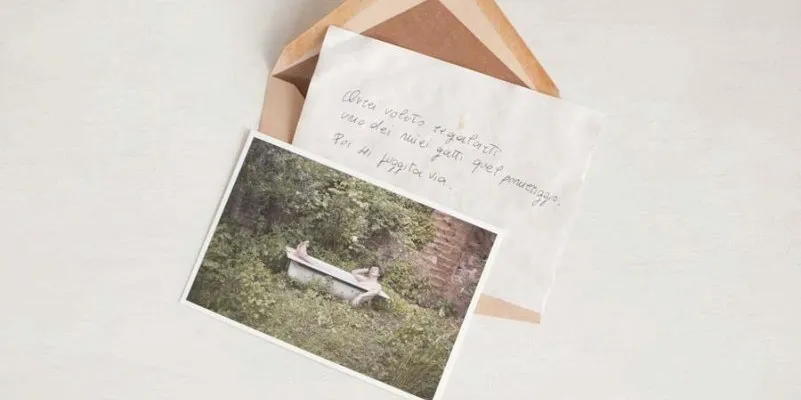 Avrei voluto regalarti
uno dei miei gatti quel pomeriggio.
Poi sei fuggita via.